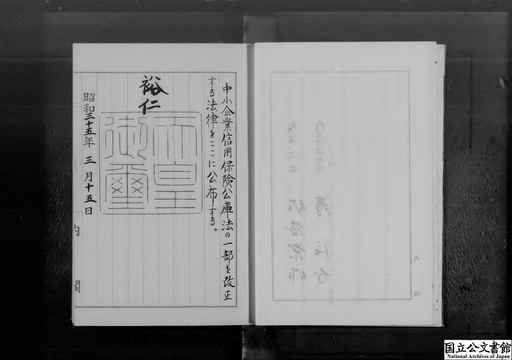 中小企業信用保険公庫法の一部を改正
する法律をここに公布する。
裕仁
天皇
御璽
昭和三十五年三月十五日
内閣
国立公文書館
National Archives of Japan